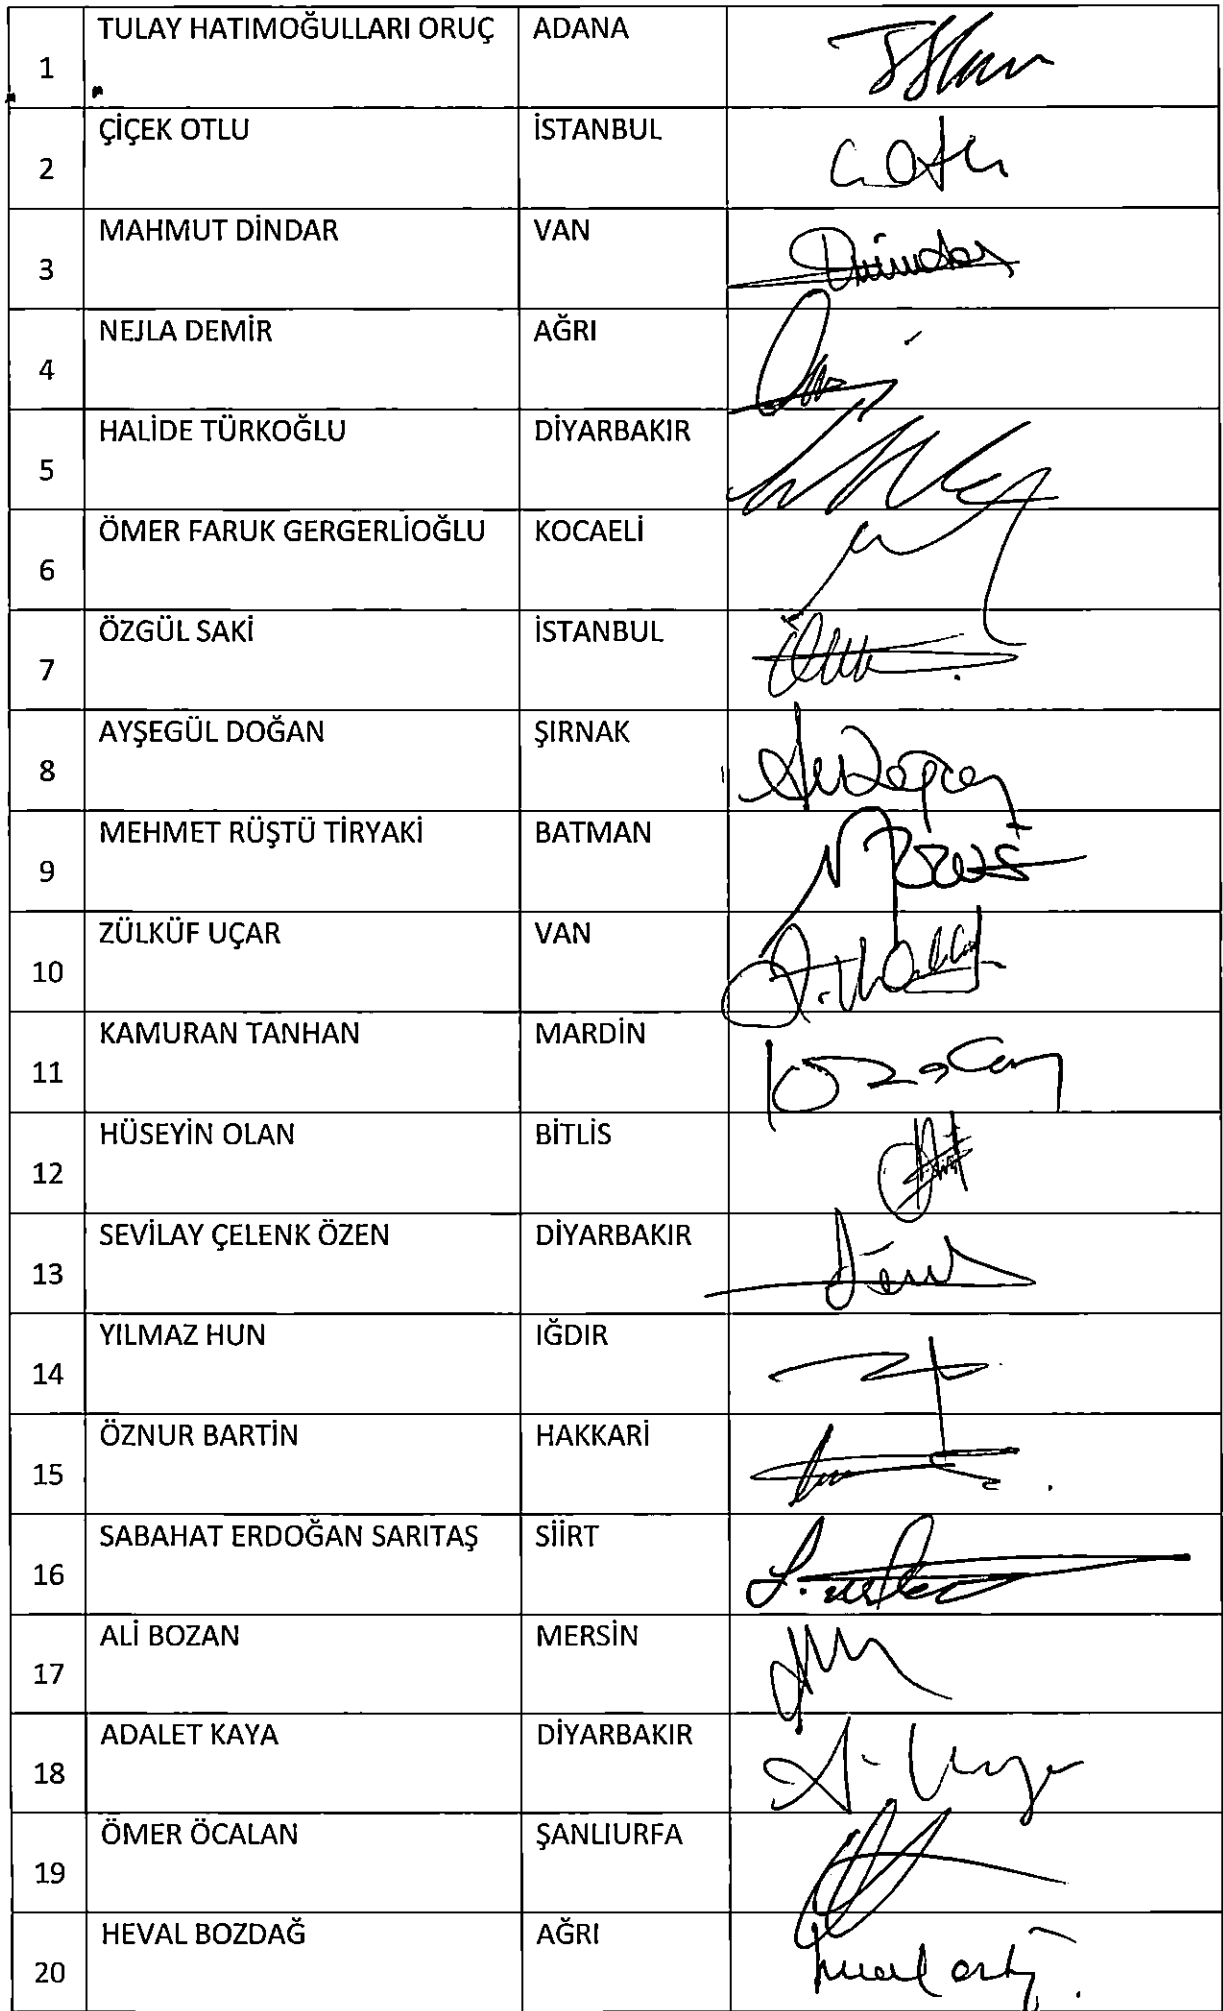 1 TULAY HATIMOĞULLARI ORUÇ ADANA
2 ÇİÇEK OTLU İSTANBUL
3 MAHMUT DİNDAR VAN
4 NEJLA DEMİR AĞRI
5 HALİDE TÜRKOĞLU DİYARBAKIR
6 ÖMER FARUK GERGERLİOĞLU KOCAELİ
7 ÖZGÜL SAKİ İSTANBUL
8 AYŞEGÜL DOĞAN ŞIRNAK
9 MEHMET RÜŞTÜ TİRYAKİ BATMAN
10 ZÜLKÜF UÇAR VAN
11 KAMURAN TANHAN MARDİN
12 HÜSEYİN OLAN BİTLİS
13 SEVİLAY ÇELENK ÖZEN DİYARBAKIR
14 YILMAZ HUN IĞDIR
15 ÖZNUR BARTİN HAKKARİ
16 SABAHAT ERDOĞAN SARITAŞ SİİRT
17 ALİ BOZAN MERSİN
18 ADALET KAYA DİYARBAKIR
19 ÖMER ÖCALAN ŞANLIURFA
20 HEVAL BOZDAĞ AĞRI